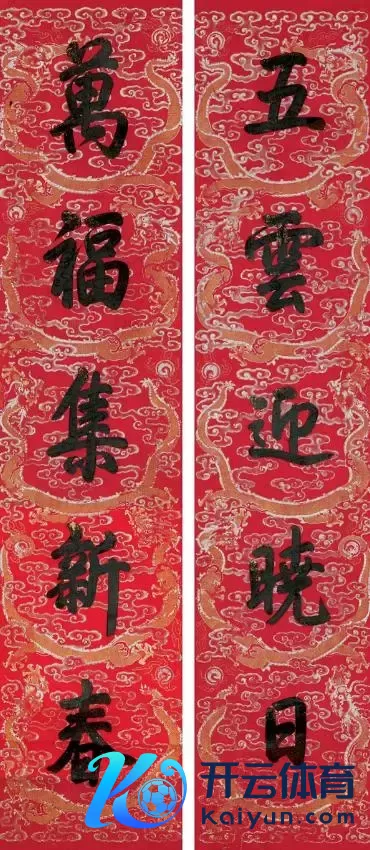 五雲迎曉日
萬福集新春
开云体育
Kaiyun.com